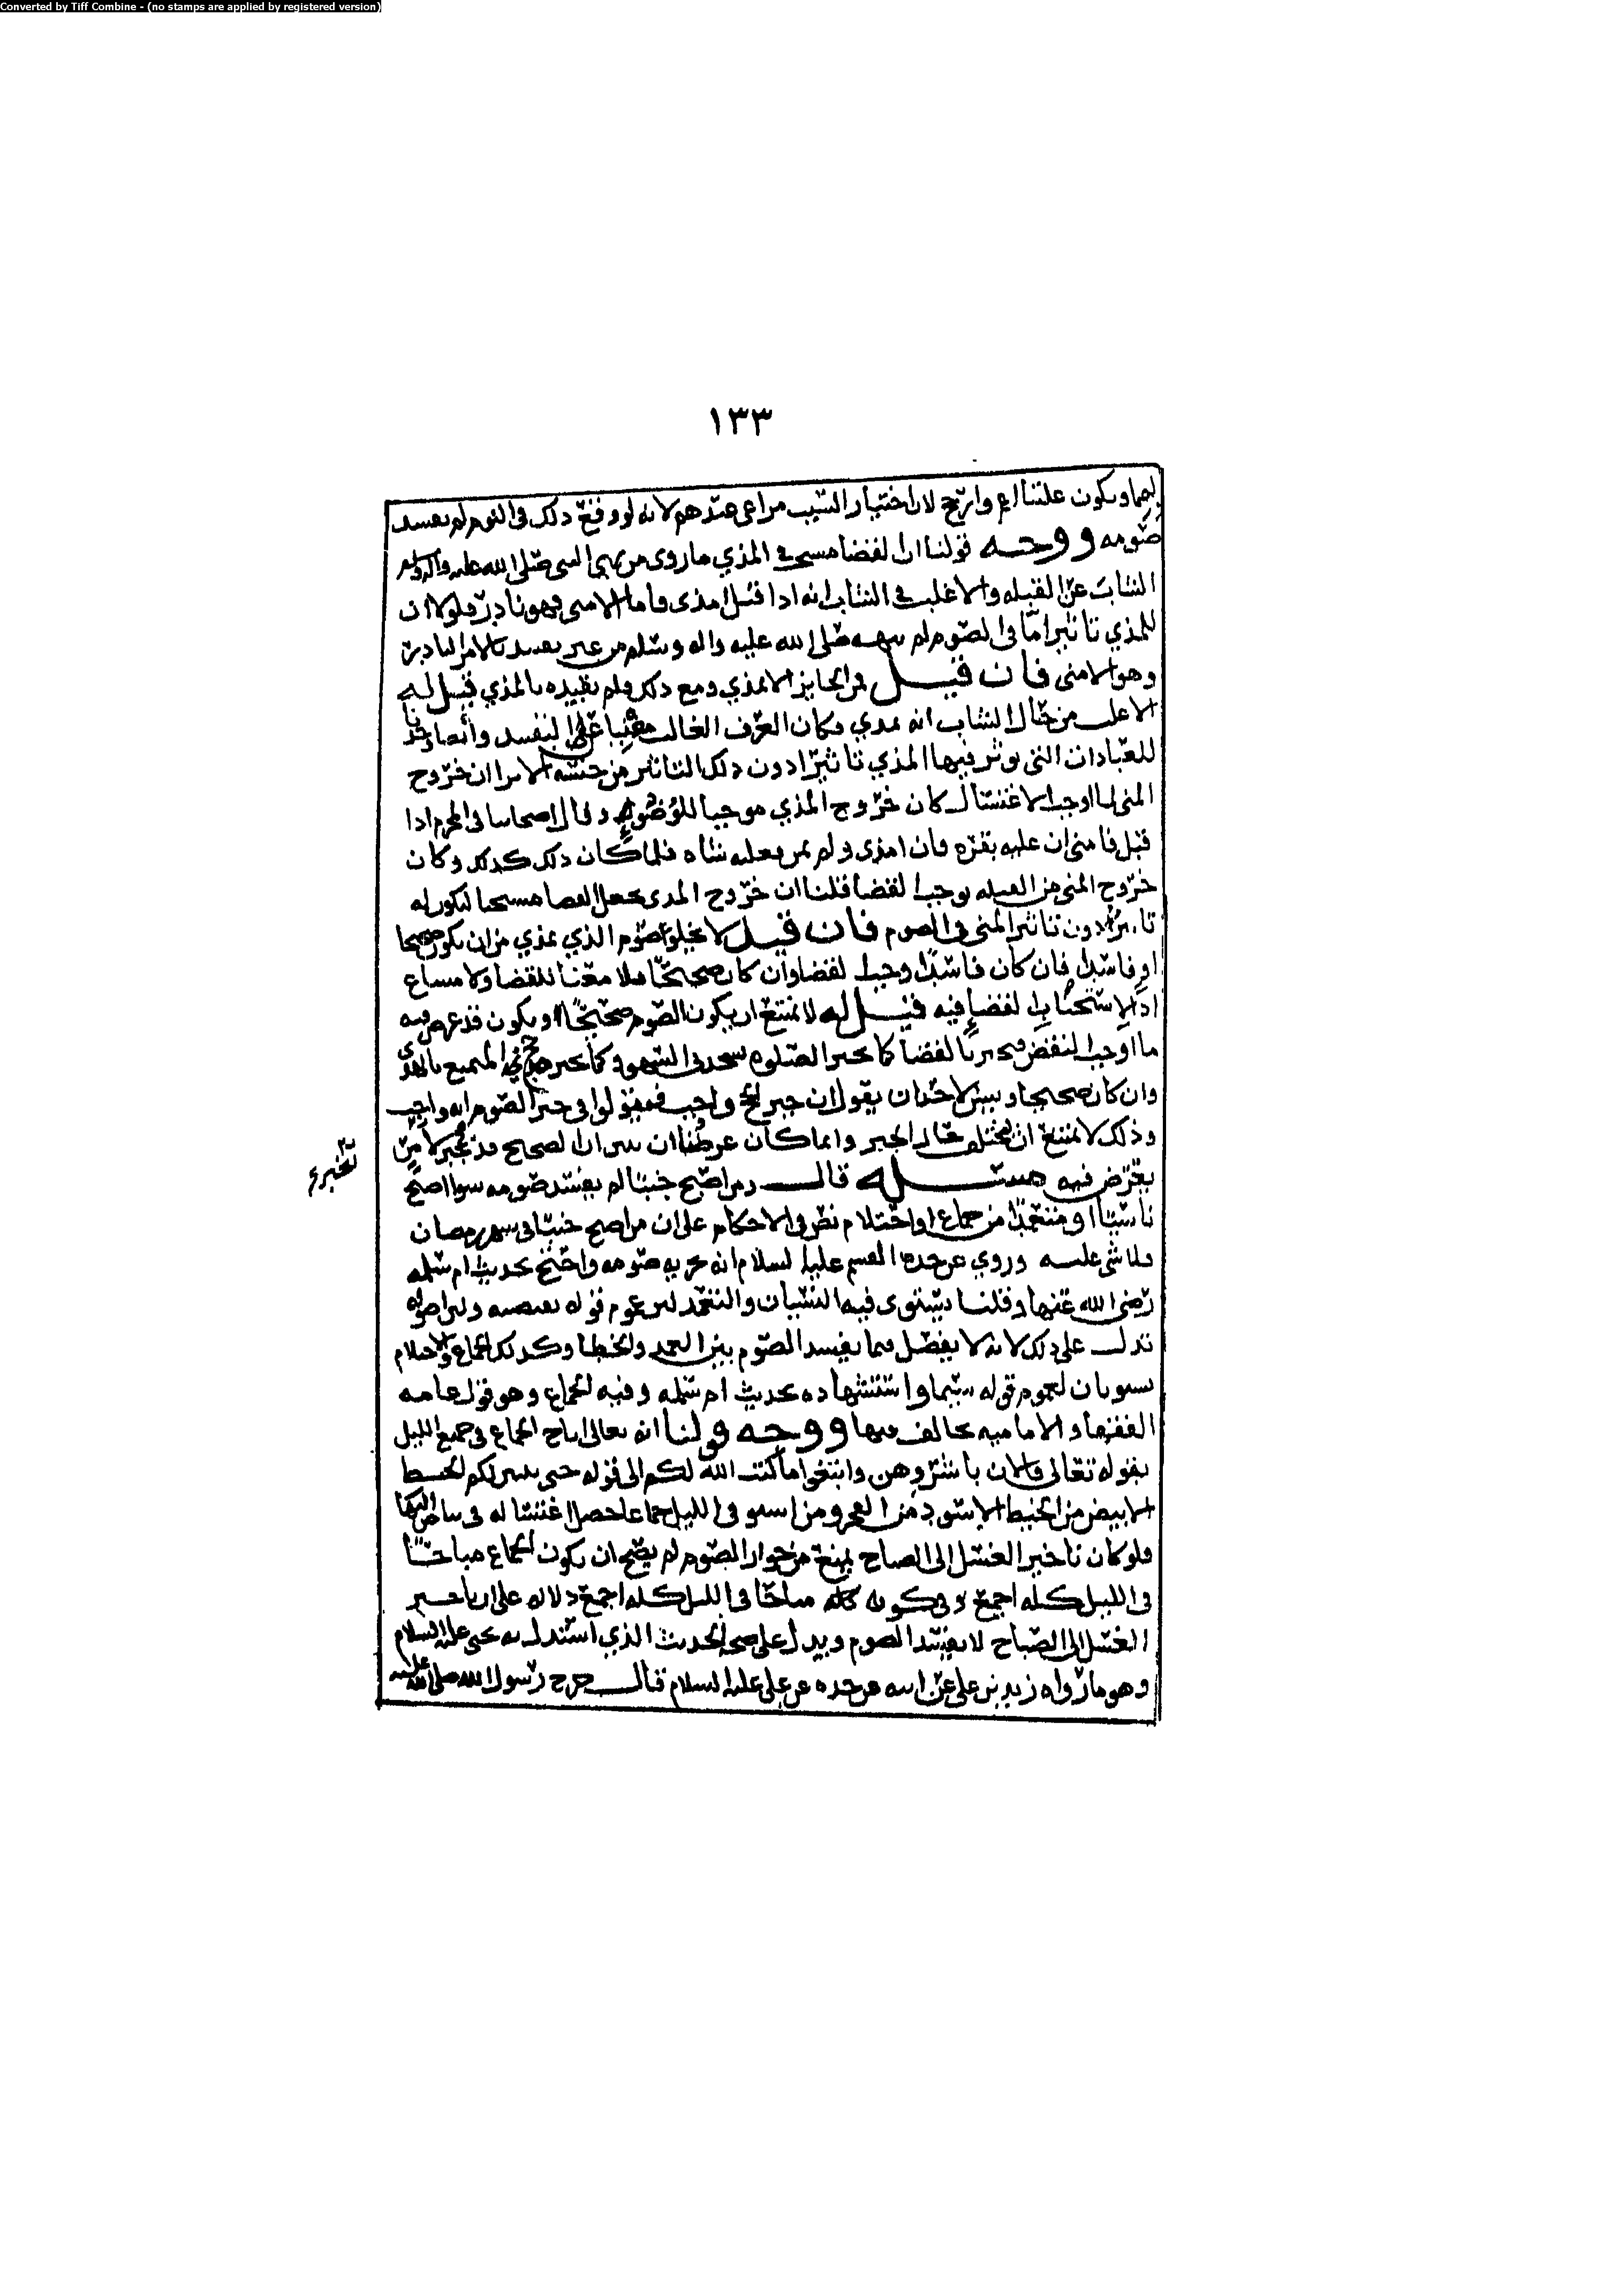 Converted by Tiff Combine - (no stamps are applied by registered version)
١٣٣
ويكون علتنا اعم وارجح لان اختيار السبب مراعى عندهم لانه لو وقع ذلك في النوم لم يفسد
صومه ووجه قولنا ان القضا مستحب في المذي ما روي من نهي النبي صلى الله عليه واله وسلم
الشاب عن القبله والاغلب في الشاب انه اذا قبل امذى فاما الامنى فهو نادر فلولا ان
للمذي تاثيرا ما في الصوم لم ينهه صلى الله عليه واله وسلم من غير تقييد بالامر النادر
وهو الامنى فان قيل فمن الجايز الا يمذي ومع ذلك ولم يقيده بالمذي قيل له
الاغلب من حال الشاب انه يمذي فكان العرف الغالب النفسد وأيضا وجدنا
للعبادات التي يوثر فيها المني تاثيرا دون ذلك التاثير من جنسه الا ترا ان خروج
المني لما اوجب الاغتسال كان خروج المذي موجبا للوضوء وقال اصحابنا في المحرم اذا
قبل فامنى ان عليه بقره فان امذى ولم يمن فعليه شاه فلما كان ذلك كذلك وكان
خروج المني من القبله يوجب القضا قلنا ان خروج المذي يجعل القضا مستحبا ليكون له
تاثير دون تاثير المني في الصوم فان قيل لا يخلو صوم الذي يمذي من ان يكون صحيحا
او فاسدا فان كان فاسدا وجب القضا وان كان صحيحا فلا معنا للقضا ولا مساغ
اذا لاستحباب القضا فيه قيل له لا يمتنع ان يكون الصوم صحيحا ويكون قد عرض فيه
ما اوجب النقض فيجبر بالقضا كما يجبر الصلوه بسجدتي السهو وكما يجبر حج المتمتع بالهدي
وان كان صحيحا وليس لاحد ان يقول ان جبر الحج واجب فيقولوا في جبر الصوم انه واجب
وذلك لا يمتنع ان يختلف حال الجبر وانما كان غرضنا ان نبين ان الصحيح قد يجبر لامر
يعرض فيه مسئله قال ومن اصبح جنبا لم يفسد صومه سوا اصبح
ناسيا او متعمدا من جماع او احتلام نص في الاحكام على ان من اصبح جنبا في شهر رمضان
فلا شي عليه وروي عن جده القسم عليه السلام انه يجزيه صومه واحتج بحديث ام سلمه
رضي الله عنها وقلنا يستوي فيه النسيان والتعمد لعموم قوله
تدل على ذلك لانه لا يفصل فيما يفسد الصوم بين العمد والخطا وكذلك الجماع والاحتلام
يستويان لعموم قوله سيما واستشهاده بحديث ام سلمه وفيه الجماع وهو قول عامه
الفقها والاماميه يخالف فيها ووجه قولنا انه تعالى اباح الجماع في جميع الليل
بقوله تعالى فالان باشروهن وابتغوا ما كتب الله لكم الى قوله حتى يتبين لكم الخيط
الابيض من الخيط الاسود من الفجر ومن استوفى الليل جماعا حصل اغتساله في بياض النهار
فلو كان تاخير الغسل الى الصباح يمنع من جواز الصوم لم يصح ان يكون الجماع مباحا
في الليل كله اجمع وفي كونه مباحا في الليل كله اجمع دلاله على ان تاخير
الغسل الى الصباح لا يفسد الصوم ويدل على صحه الحديث الذي استدل به يحيى عليه السلام
وهو ما رواه زيد بن علي عن ابيه عن جده عن علي عليه السلام قال خرج رسول الله صلى الله عليه